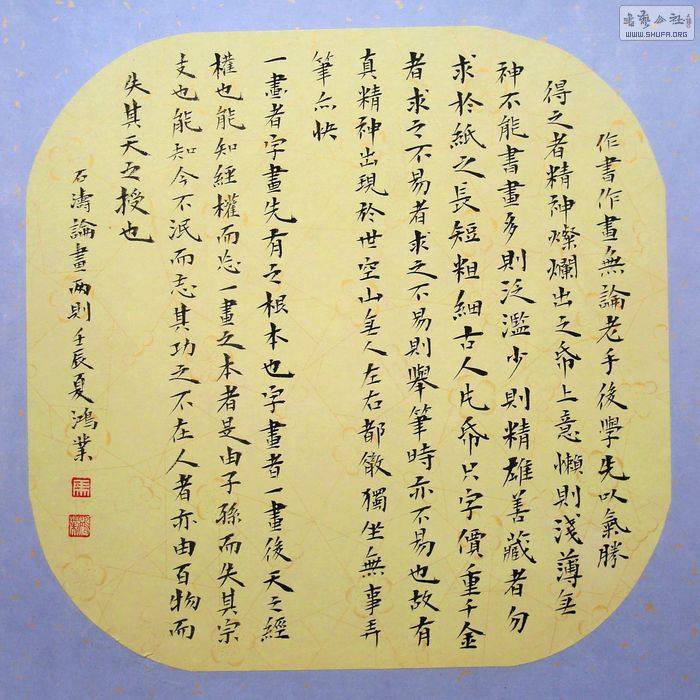 作書作畫無論老手後學先以氣勝
得之者精神燦爛出之帋上意懶則淺薄無
神不能書畫多則泛濫少則精雄善藏者勿
求於紙之長短粗細古人片帋只字價重千金
者求之不易者求之不易則舉筆時亦不易也故有
真精神出現於世空山無人左右都斂獨坐無事弄
筆亦快
一畫者字畫先有之根本也字畫者一畫後天之經
權也能知經權而忘一畫之本者是由子孫而失其宗
支也能知今不泯而志其功之不在人者亦由百物而
失其天之授也
石濤論畫兩則壬辰夏鴻業
書藝公社
WWW.SHUFA.ORG